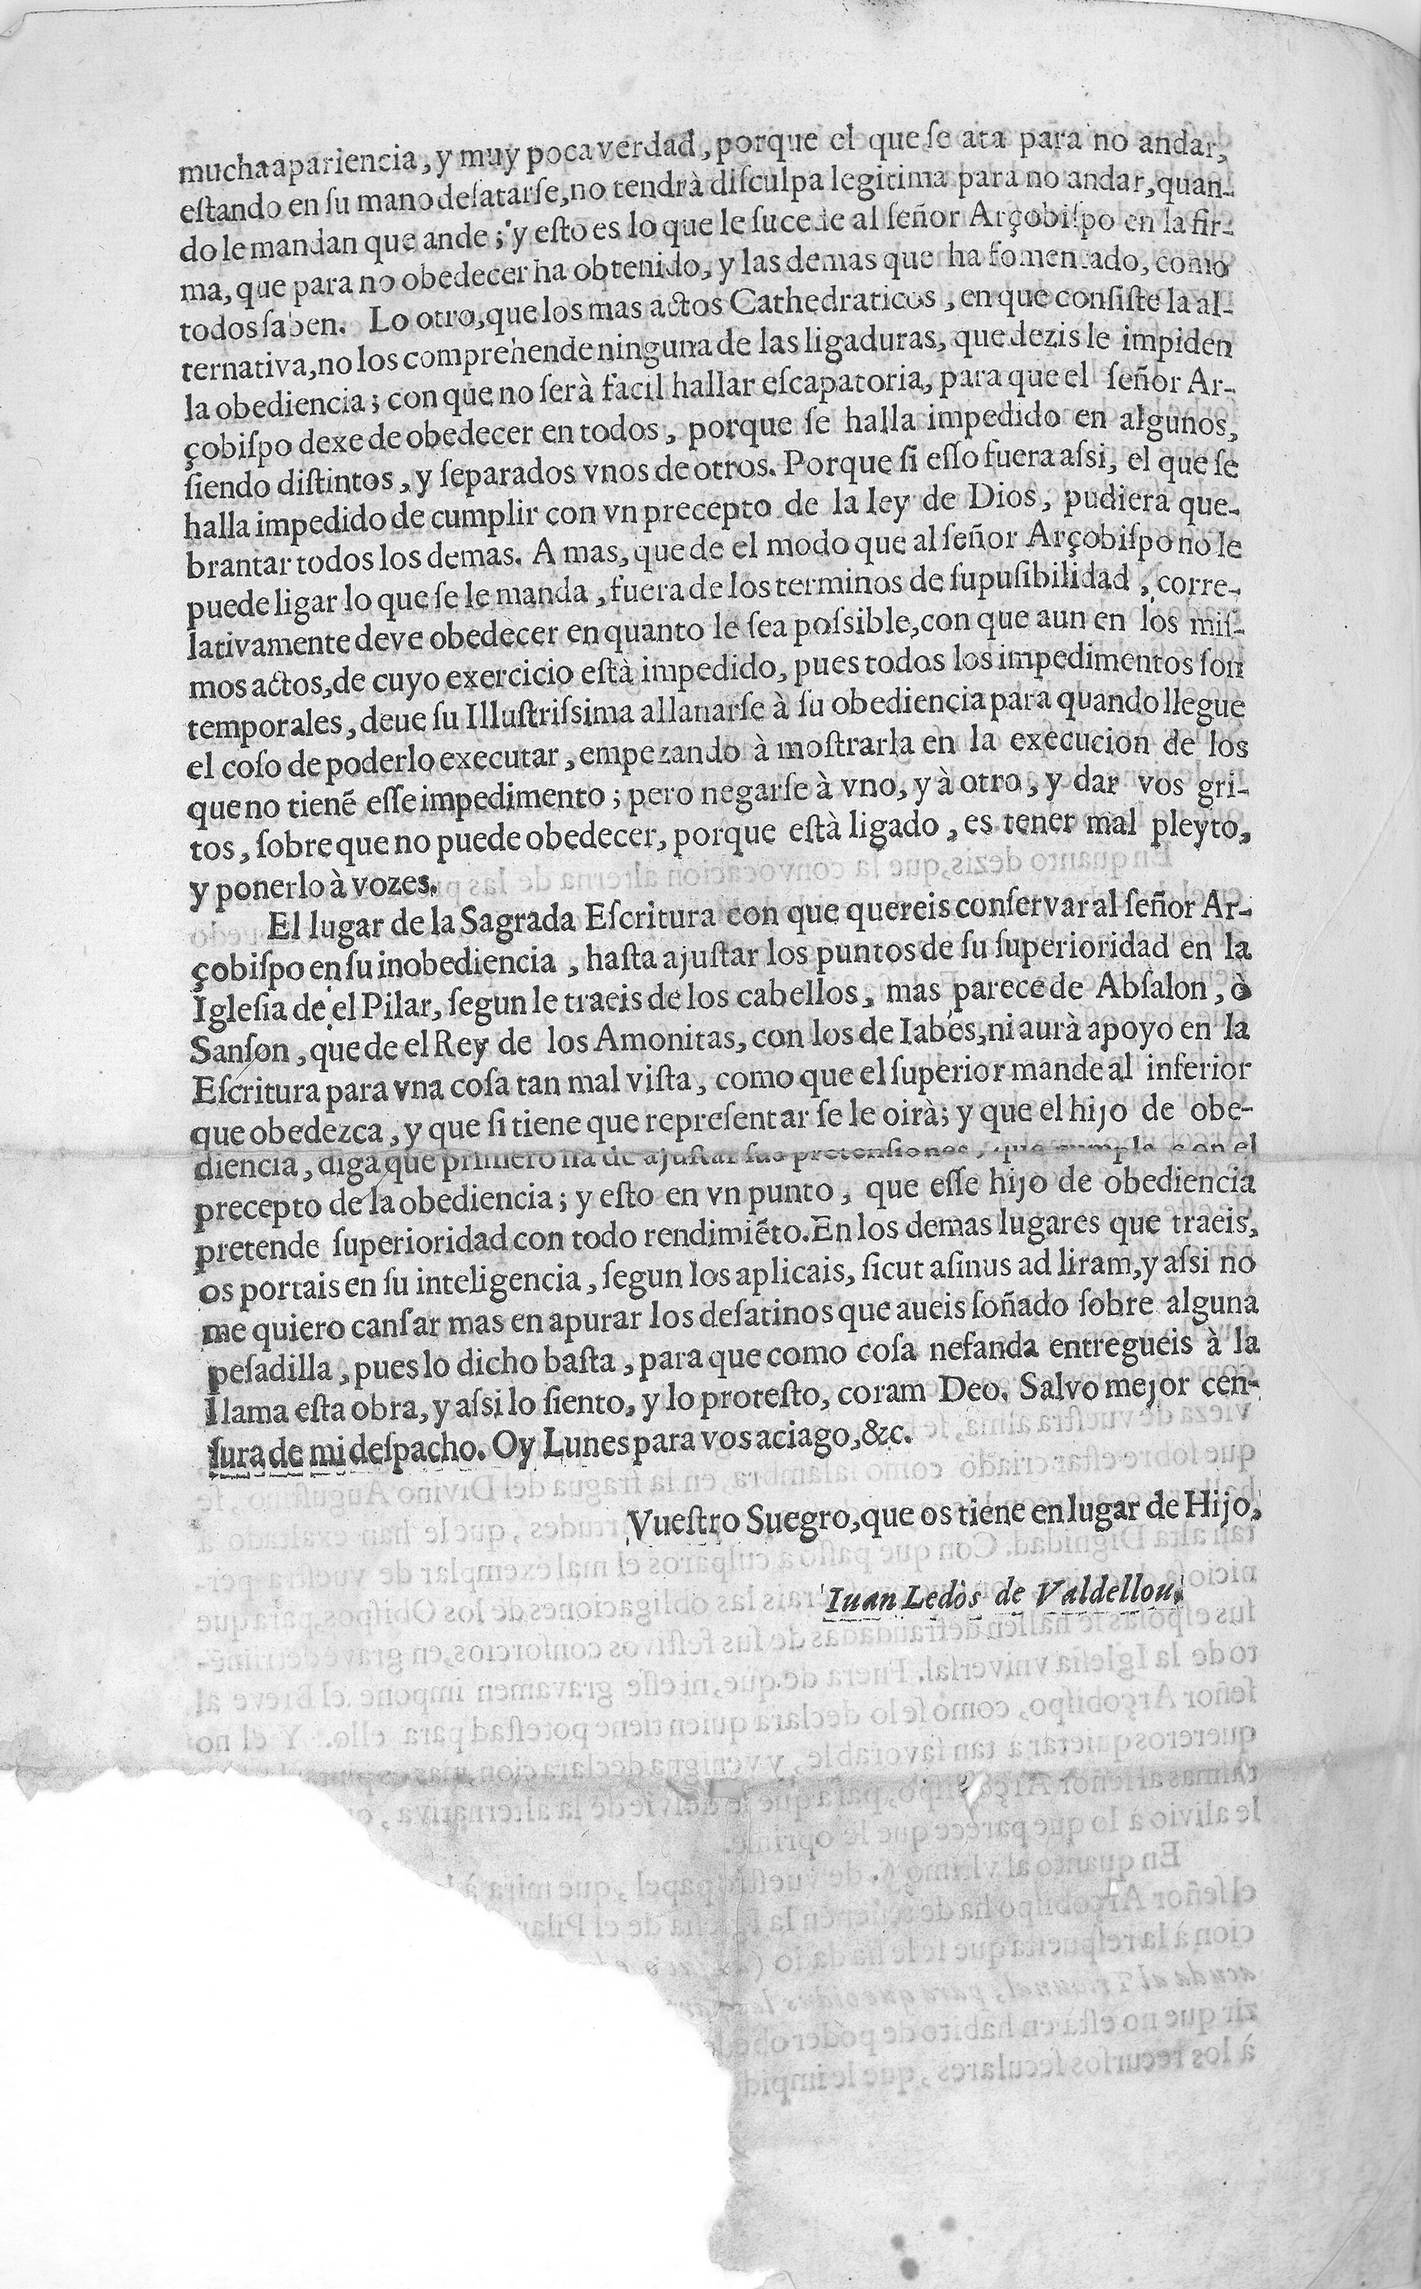 mucha apariencia, y muy poca verdad, porque el que ſe ata para no andar,
eſtando en ſu mano deſatarſe, no tendrà diſculpa legitima para no andar, quan-
do le mandan que ande; y eſto es lo que le ſucede al ſeñor Arçobiſpo en la fir-
ma, que para no obedecer ha obtenido, y las demas que ha fomentado, como
todos ſaben. Lo otro, que los mas actos Cathedraticos, en que conſiſte la al-
ternativa, no los comprehende ninguna de las ligaduras, que dezis le impiden
la obediencia; con que no ſerà facil hallar eſcapatoria, para que el ſeñor Ar-
çobiſpo dexe de obedecer en todos, porque ſe halla impedido en algunos,
ſiendo diſtintos, y ſeparados vnos de otros. Porque ſi eſſo fuera aſsi, el que ſe
halla impedido de cumplir con vn precepto de la ley de Dios, pudiera que-
brantar todos los demas. A mas, que de el modo que al ſeñor Arçobiſpo no le
puede ligar lo que ſe le manda, fuera de los terminos de ſupuſibilidad, corre-
lativamente deve obedecer en quanto le ſea poſsible, con que aun en los miſ-
mos actos, de cuyo exercicio eſtà impedido, pues todos los impedimentos ſon
temporales, deue ſu Illuſtriſsima allanarſe à ſu obediencia para quando llegue
el coſo de poderlo executar, empezando à moſtrarla en la execucion de los
que no tienẽ eſſe impedimento; pero negarſe à vno, y à otro, y dar vos gri-
tos, ſobre que no puede obedecer, porque eſtà ligado, es tener mal pleyto,
y ponerlo à vozes.
El lugar de la Sagrada Eſcritura con que quereis conſervar al ſeñor Ar-
çobiſpo en ſu inobediencia, haſta ajuſtar los puntos de ſu ſuperioridad en la
Igleſia de el Pilar, ſegun le traeis de los cabellos, mas parece de Abſalon, ò
Sanſon, que de el Rey de los Amonitas, con los de Iabès, ni aurà apoyo en la
Eſcritura para vna coſa tan mal viſta, como que el ſuperior mande al inferior
que obedezca, y que ſi tiene que repreſentar ſe le oirà; y que el hijo de obe-
diencia, diga que primero ha de ajuſtar ſus pretenſiones, que cumpla con el
precepto de la obediencia; y eſto en vn punto, que eſſe hijo de obediencia
pretende ſuperioridad con todo rendimiẽto. En los demas lugares que traeis,
os portais en ſu inteligencia, ſegun los aplicais, ſicut aſinus ad liram, y aſsi no
me quiero canſar mas en apurar los deſatinos que aueis ſoñado ſobre alguna
peſadilla, pues lo dicho baſta, para que como coſa nefanda entregueis à la
llama eſta obra, y aſsi lo ſiento, y lo proteſto, coram Deo. Salvo mejor cen-
ſura de mi deſpacho. Oy Lunes para vos aciago, &c.
Vueſtro Suegro, que os tiene en lugar de Hijo,
Iuan Ledòs de Valdellou.